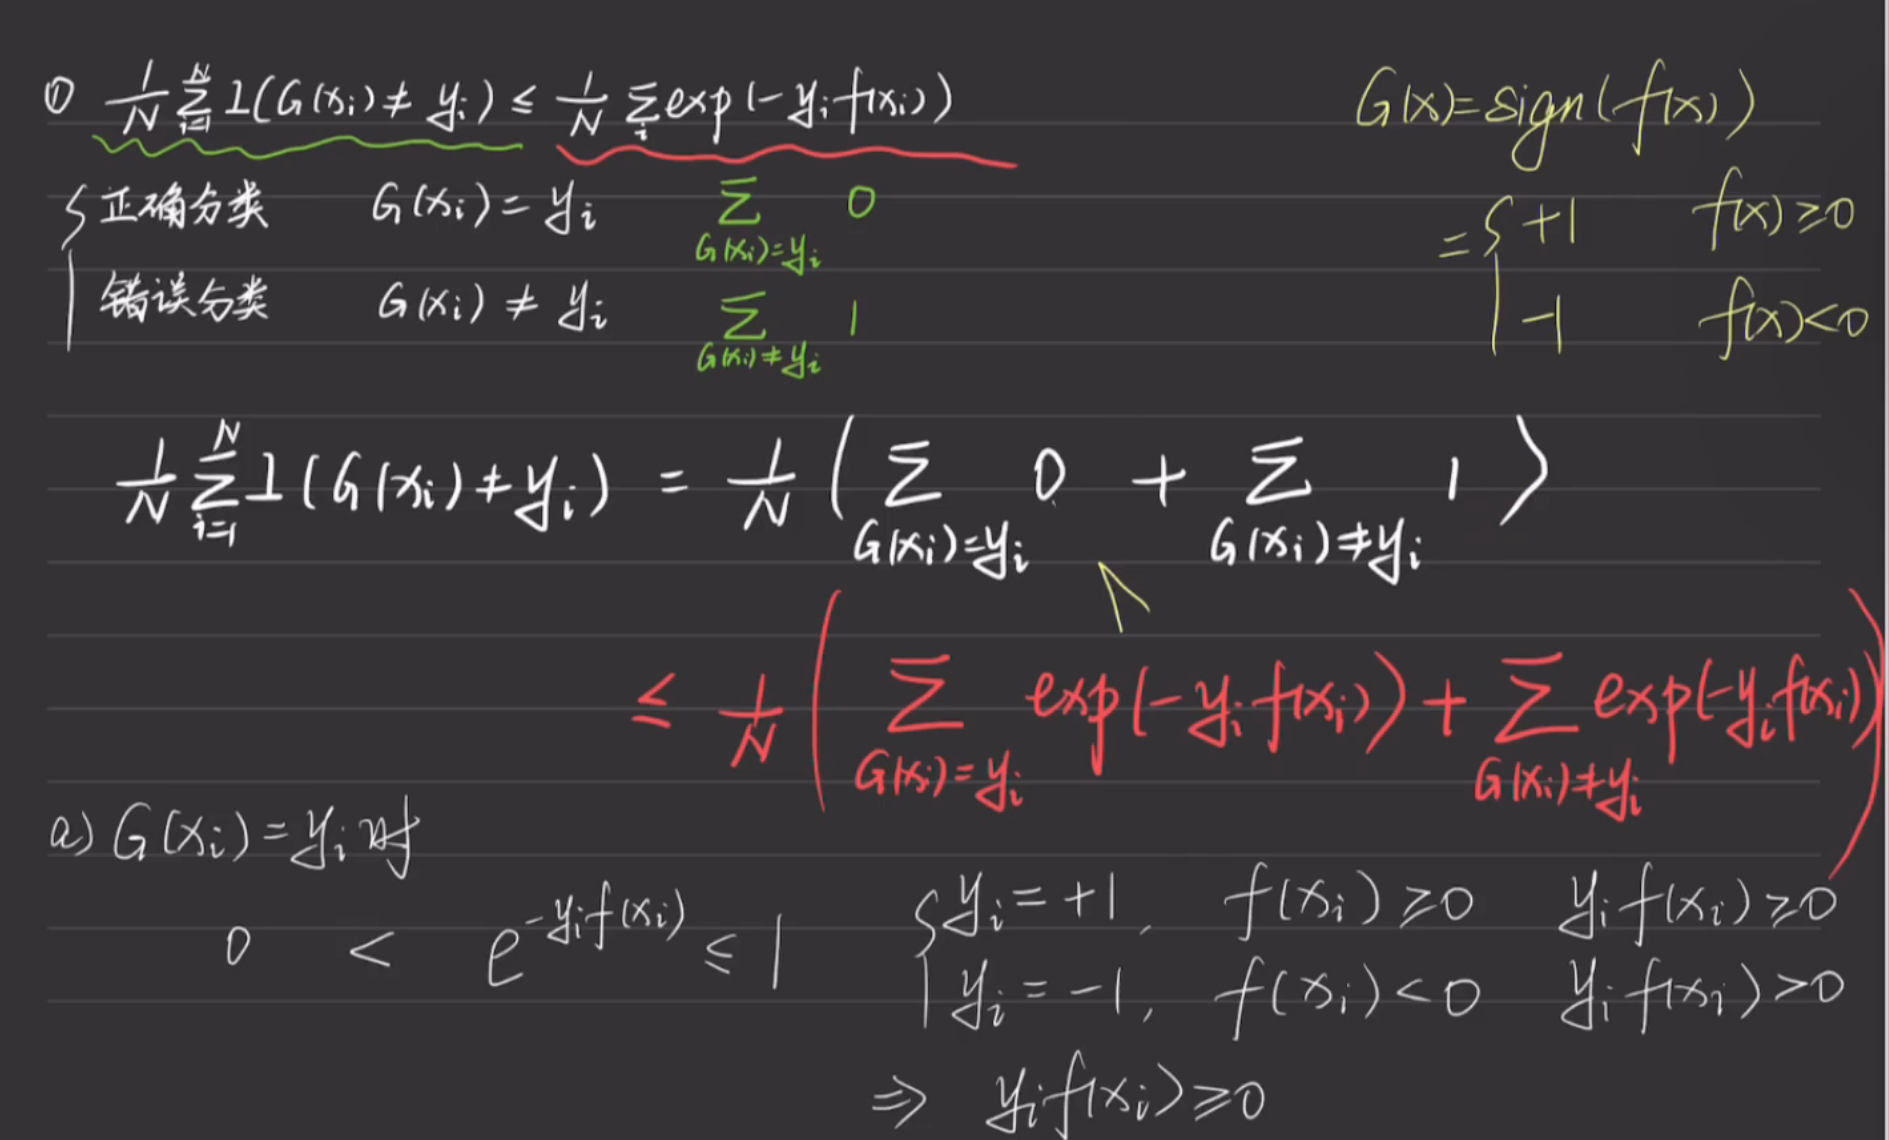 ① 1/N Σ_{i=1}^{N} 1(G(xᵢ)≠yᵢ) ≤ 1/N Σ_i exp(-yᵢf(xᵢ))
G(x)=sign(f(x))
{ 正确分类 G(xᵢ)=yᵢ Σ_{G(xᵢ)=yᵢ} 0
= { +1 f(x)≥0
错误分类 G(xᵢ)≠yᵢ Σ_{G(xᵢ)≠yᵢ} 1
-1 f(x)<0
1/N Σ_{i=1}^{N} 1(G(xᵢ)≠yᵢ) = 1/N ( Σ_{G(xᵢ)=yᵢ} 0 + Σ_{G(xᵢ)≠yᵢ} 1 )
≤ 1/N ( Σ_{G(xᵢ)=yᵢ} exp(-yᵢf(xᵢ)) + Σ_{G(xᵢ)≠yᵢ} exp(-yᵢf(xᵢ)) )
a) G(xᵢ)=yᵢ时
0 < e^{-yᵢf(xᵢ)} ≤ 1
{ yᵢ=+1, f(xᵢ)≥0 yᵢf(xᵢ)≥0
yᵢ=-1, f(xᵢ)<0 yᵢf(xᵢ)>0
⇒ yᵢf(xᵢ)≥0